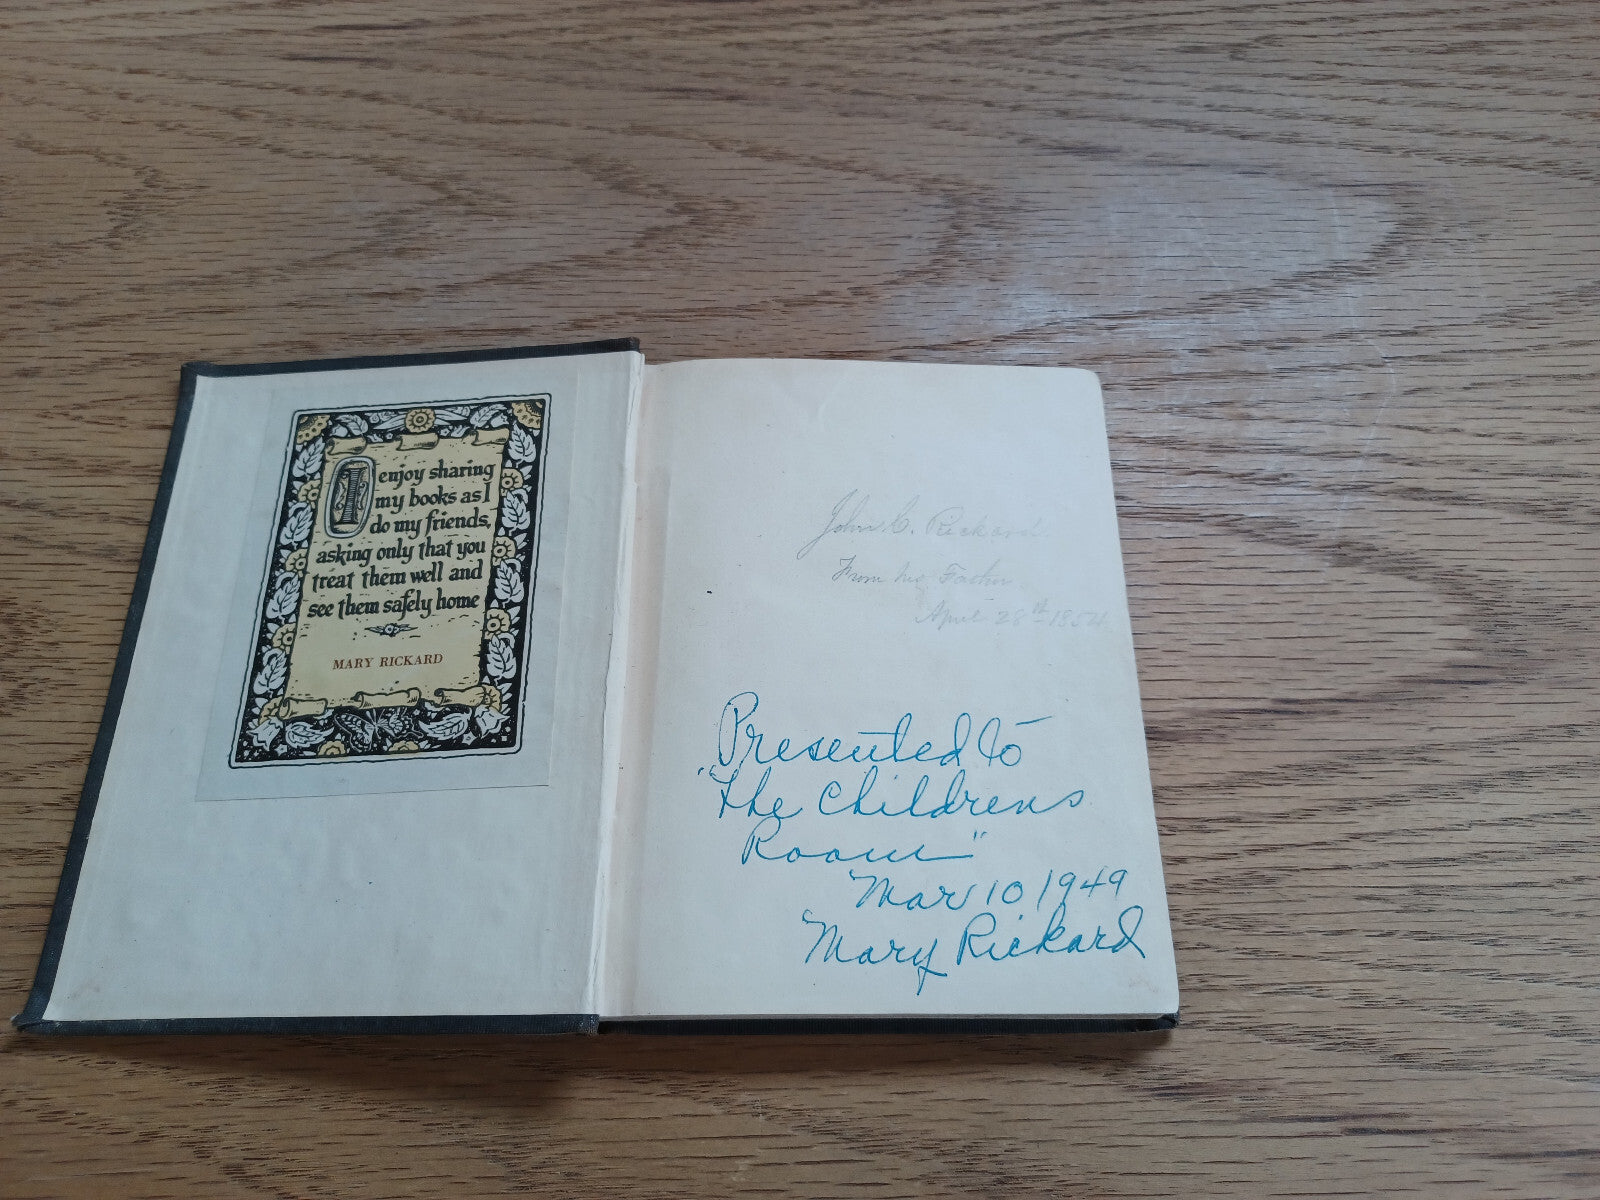 I enjoy sharing
my books as I
do my friends,
asking only that you
treat them well and
see them safely home
MARY RICKARD
John C. Rickard.
From his Father.
April 28th 1854
Presented to
"The Childrens
Room"
Mar 10 1949
Mary Rickard